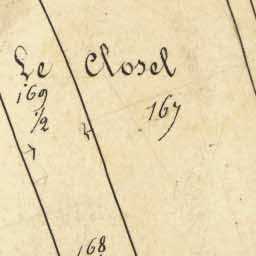 Le Closel
169
1/2
167
168